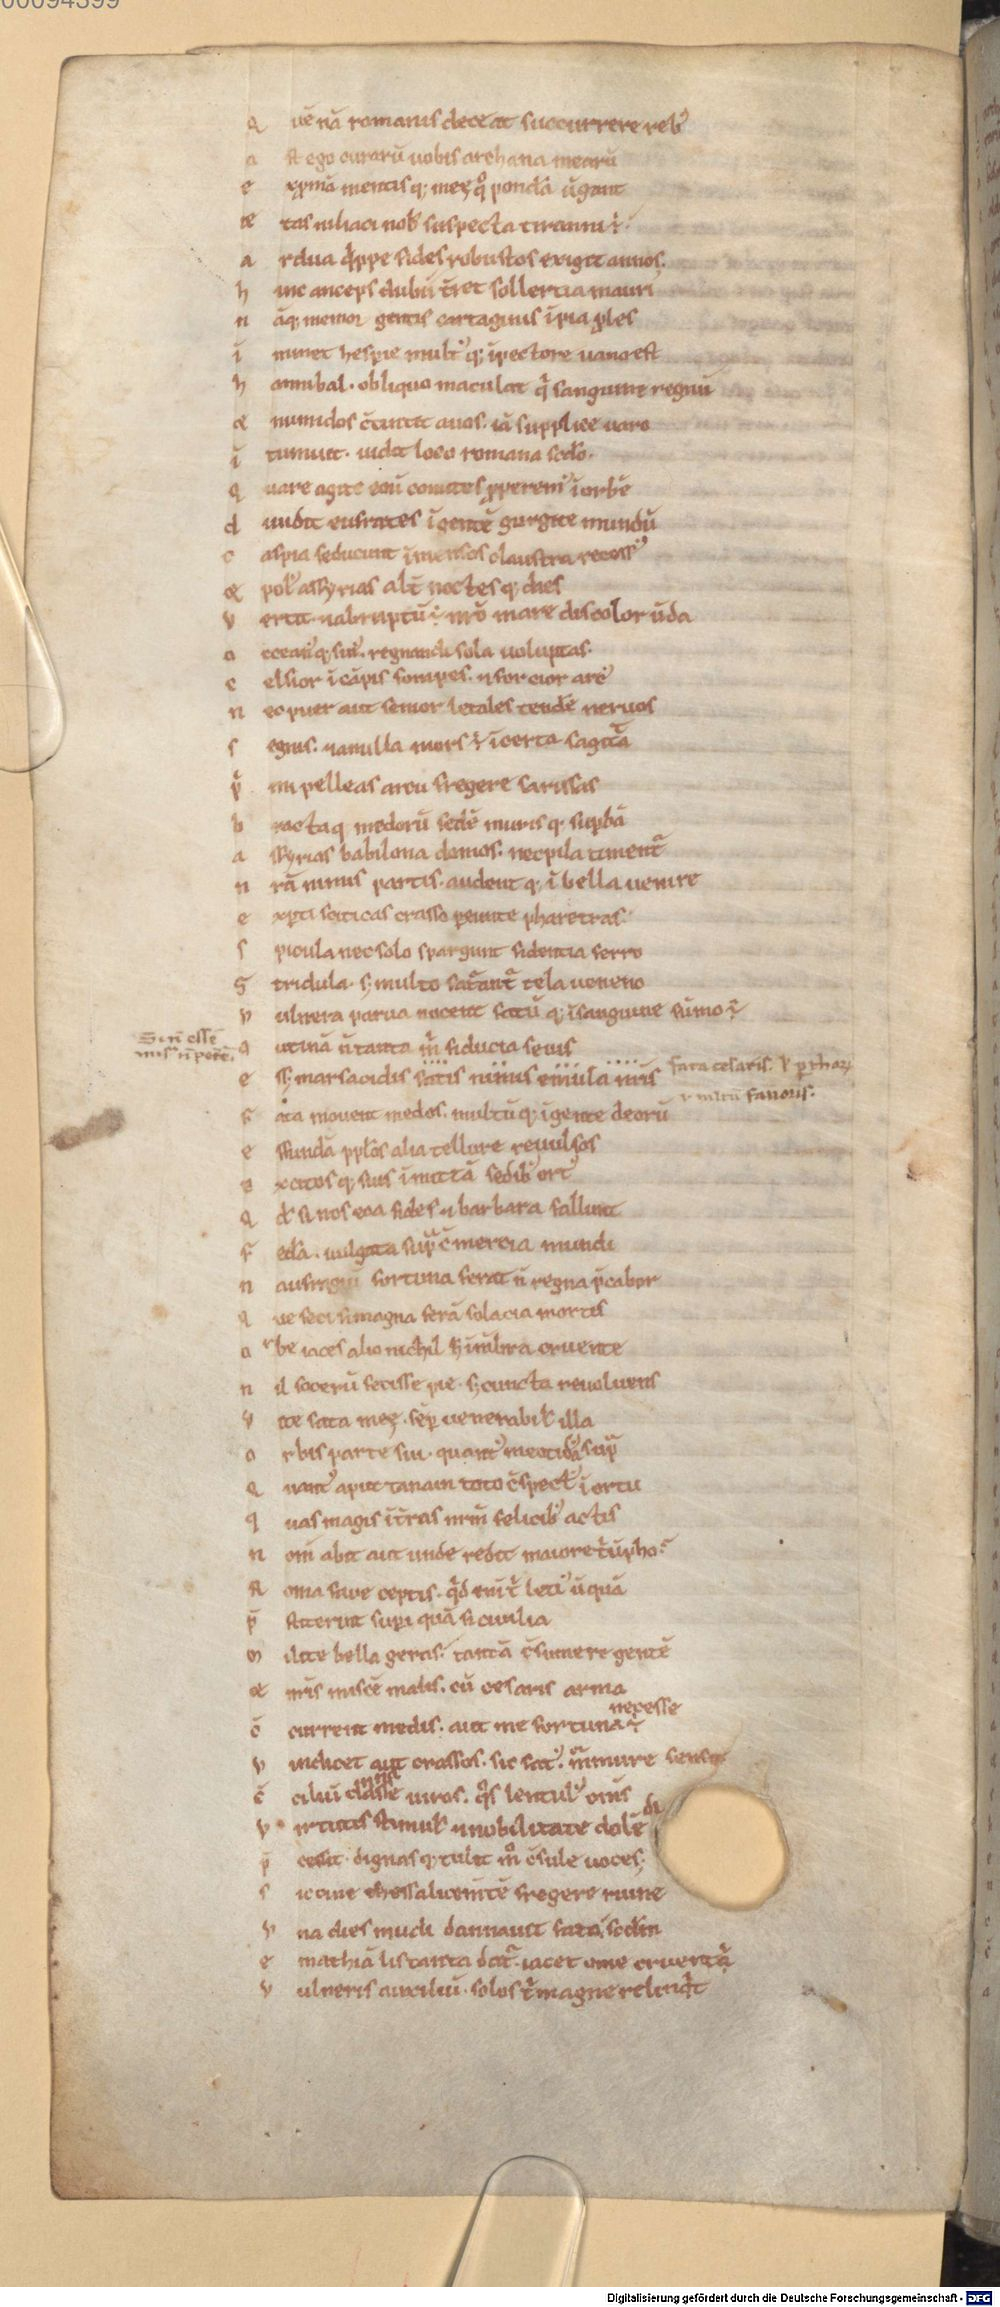 00094399
Q uē nā romanis deceat succurrere reb᷒
a st ego curarū uobis archana mearū
e xp̄mā mentis q; meę q̊ pondā ūgant
e tas niliaci nob̄ suspecta tiranni ē·
a rdua q̄ppe fides robustos exigit annos.
h inc anceps dubii t̄ret sollertia mauri
n āq; memor gentis cartaginis īpia ꝓles
i minet hesperie mult᷒ q; īpectore uano est
h annibal· obliquo maculat q̄ sanguine regnū
& numidos c̄tintit auos. iā supplice uaro
i tumuit· uidit loco romana scdo·
q uare agite eoū comites ꝓperem᷒ ī orbē
d iuidit eufrates īgentē gurgite mundū
c aspia seducunt īmensos claustra recess᷒
& pol᷒ assyrias alt̄ noctes q; dies
v ertit· nabruptū ē nr̄o mare discolor ūda
o cceani᷒ q; su᷒· regnandi sola uoluptas.
c elsior ī cāpis sonipes. n forcior arc᷒
n ec puer aut senior letales tendē neruos
s egnis. nanulla mors ē īcerta sagitta
p̄ mi pelleas arcu fregere sarissas
b actaq medorū sedē muris q; supbā
a ssyrias babilona domos. necpila timent᷑
n rā nimis partis. audent q; ī bella uenire
e xꝑti sciticas crasso ꝑeunte pharetras·
s picula nec solo spargunt fidentia ferro
S tridula· s; multo satᷓant᷑ tela ueneno
v ulnera parua nocent fatū q; ī sanguine sūmo ē
Si n̄ essē
nus n̄ petē.
q utinā n̄ tanta m̄ fiducia seuis
e ss; marsacidis fatis nimis emula nr̄is
fata cesaris. ł ꝑthoꝝ
fauoris.
f ata mouent medos. multū q; īgente deorū
e ffundā pplos alia tellure reuulsos
e xcitos q; suis īmittā sedib᷒ ort᷒
Q d̄ si nos eoa fides n barbara fallunt
f edā· uulgata supᷓ c̄mercia mundi
n aufragiū fortuna ferat n̄ regna p̄cabor
q ue feci si magna ferā solacia mortis
o rbe iaces alio nichil h̄ īmbra cruente
n il socerū fecisse pie· s; cuncta reuoluens
v ite fata meę· sēp uenerabil᷒ illa
o rbis parte fui· quant᷒ meotida supᷓ
Q uant᷒ aput tanain toto c̄spect᷒ ī ortu
q uas magis ī t̄ras nrm̄ felicib᷒ actis
n om̄ abit aut unde redit maiore t̄ūpho
R oma faue ceptis· q̄d enī t᷑ leti᷒ ūquā
p̄ stiterint supi quā si ciuilia
m ilite bella geras. tantā c̄sumere gentē
& nr̄is miscē malis. cū cesaris arma
necesse
c̄ current medis. aut me fortuna ē
v indicet aut crassos. sic fat᷒. mᷓmure sensit
c̄ ciliū damnasse uiros. q̊s lentul᷒ om̄s
v irtutis stimul᷒ n nobilitate dolēdi
p̄ cessit· dignas q; tulit m̊ c̄sule uoces.
s iccine thessalice mtē fregere ruine
v na dies mudi dannauit fata. scdm
e mathiā lis tanta datᷓ· iacet ome cruentᷓ
v ulneris auxiliū· solos t̄ magne reliqt
Digitalisierung gefördert durch die Deutsche Forschungsgemeinschaft - DFG